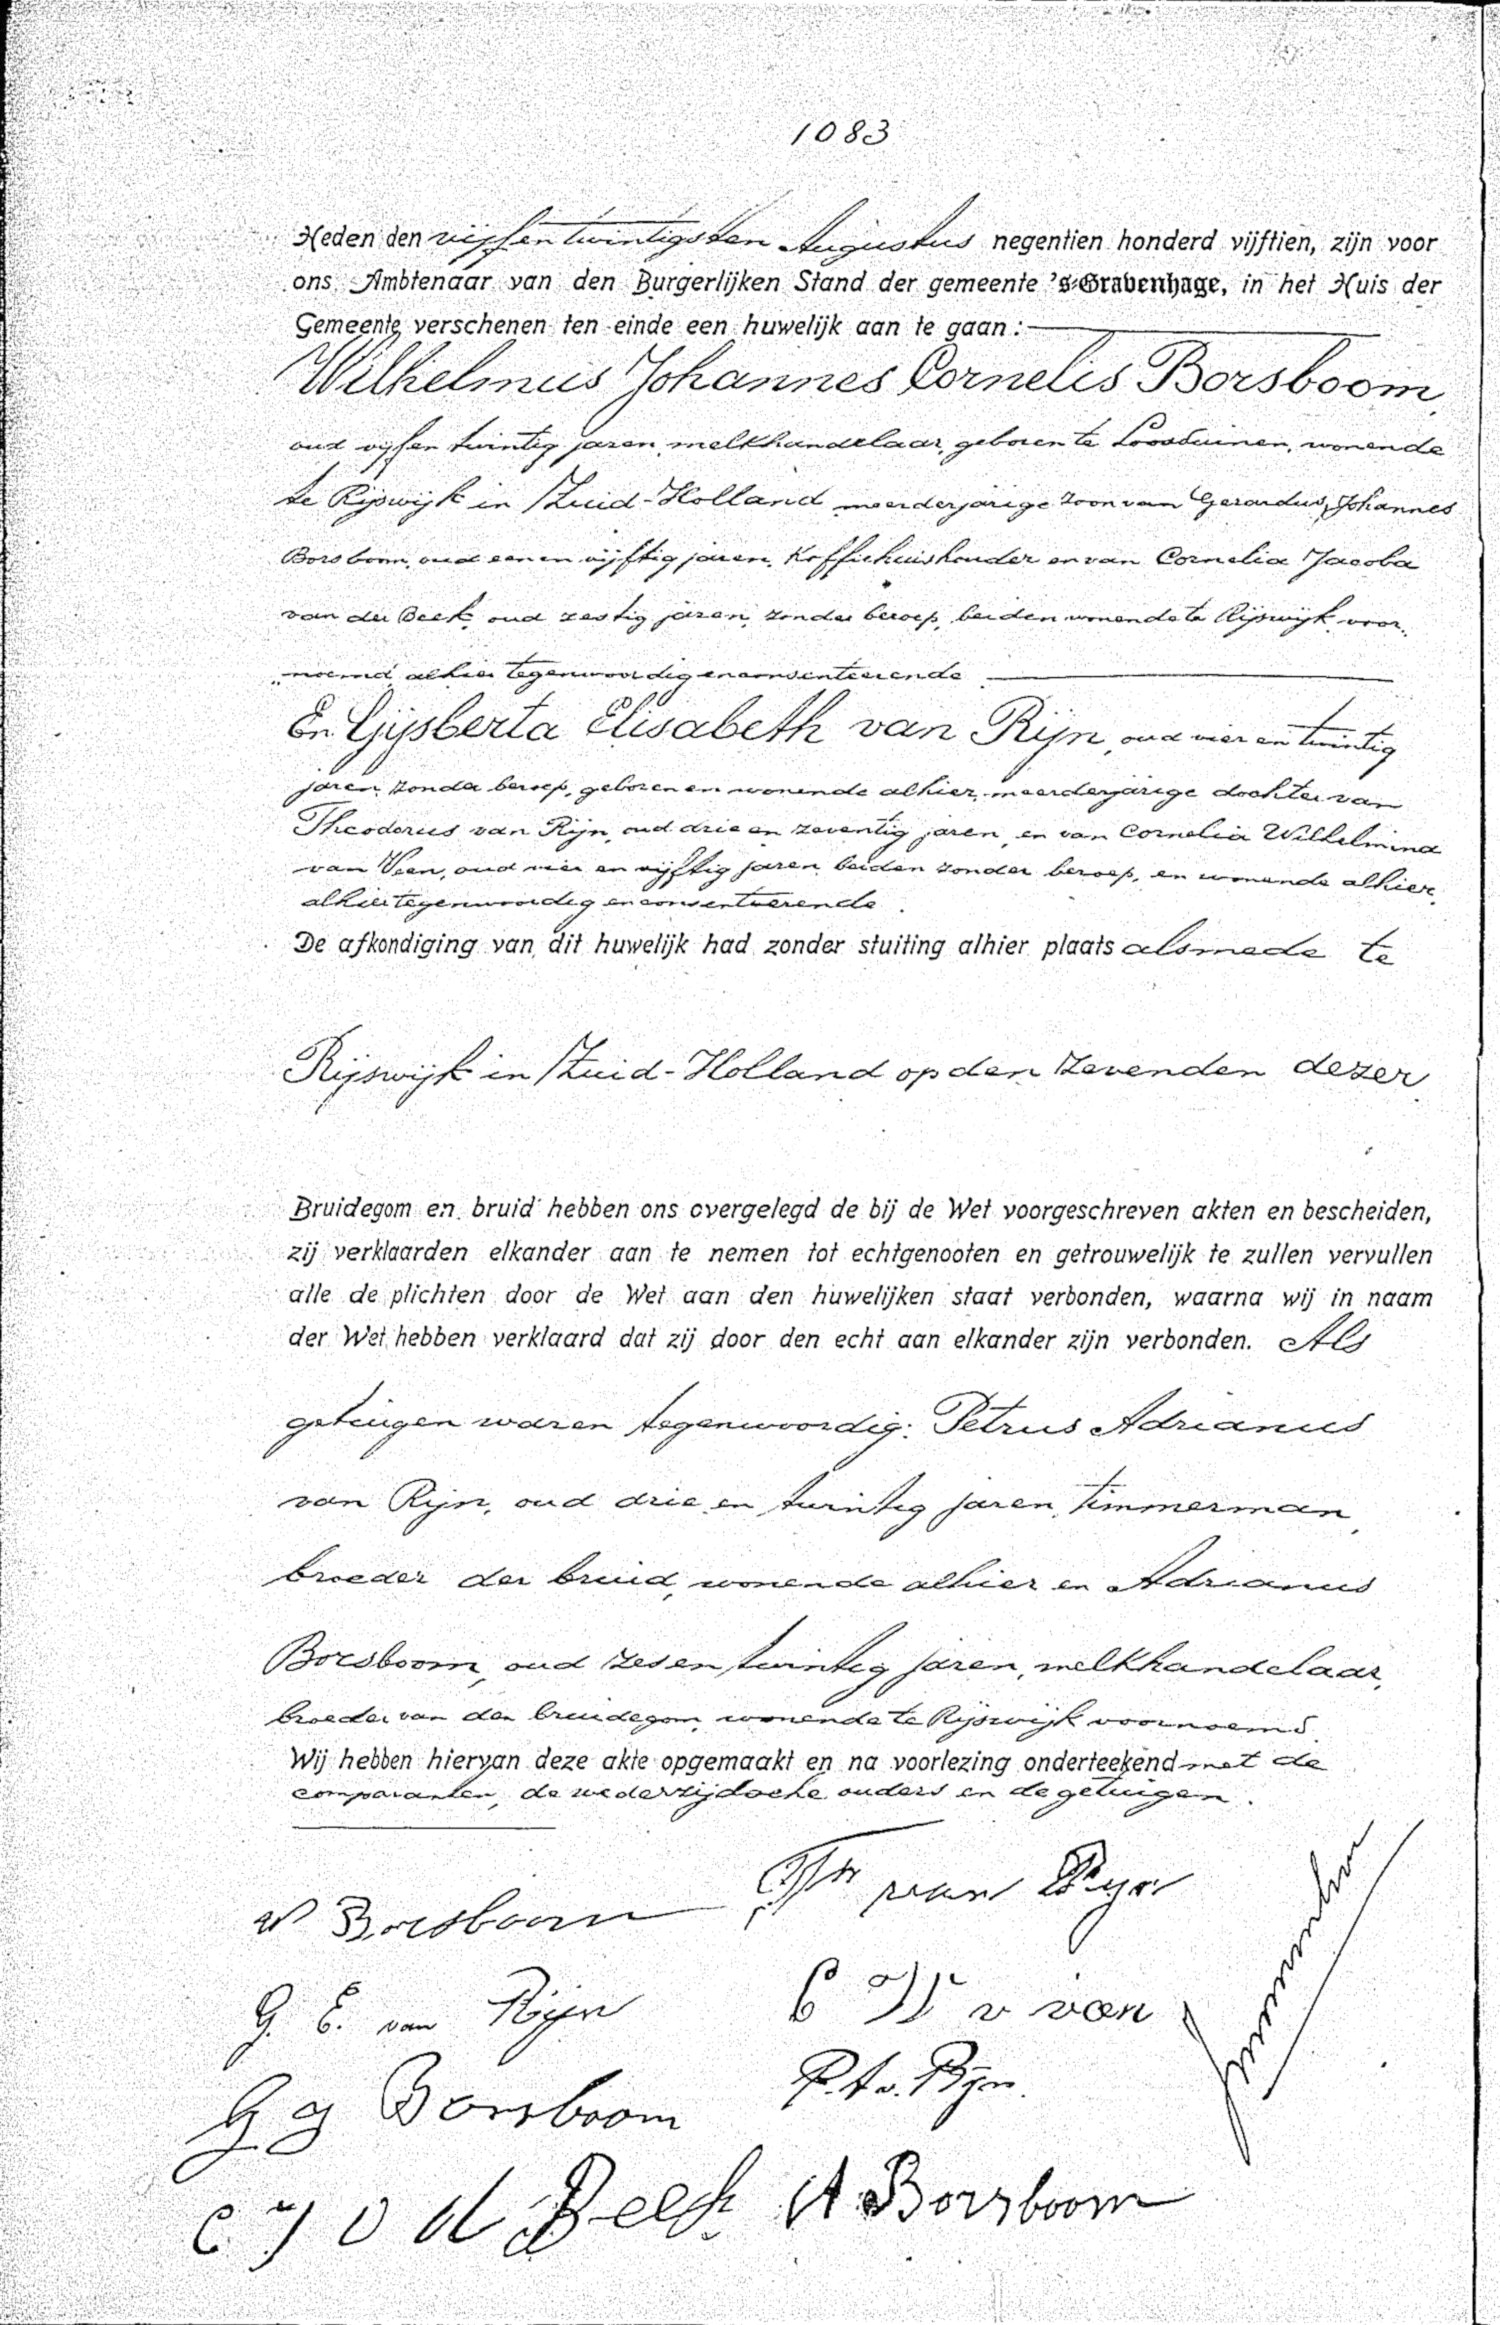 1083
Heden den vijfentwintigsten Augustus negentien honderd vijftien, zijn voor
ons Ambtenaar van den Burgerlijken Stand der gemeente 's-Gravenhage, in het Huis der
Gemeente verschenen ten einde een huwelijk aan te gaan:
Wilhelmus Johannes Cornelis Borsboom,
oud vijfentwintig jaren, melkhandelaar, geboren te Loosduinen, wonende
te Rijswijk in Zuid-Holland meerderjarige zoon van Gerardus Johannes
Borsboom, oud een en vijftig jaren, koffiehuishouder en van Cornelia Jacoba
van der Beek, oud zestig jaren, zonder beroep, beiden wonende te Rijswijk voor-
"noemd, alhier tegenwoordig en consenteerende
En Gijsberta Elisabeth van Rijn, oud vier en twintig
jaren, zonder beroep, geboren en wonende alhier, meerderjarige dochter van
Theodorus van Rijn, oud drie en zeventig jaren, en van Cornelia Wilhelmina
van Veen, oud vier en vijftig jaren, beiden zonder beroep, en wonende alhier,
alhier tegenwoordig en consenteerende.
De afkondiging van dit huwelijk had zonder stuiting alhier plaats alsmede te
Rijswijk in Zuid-Holland op den zevenden dezer
Bruidegom en bruid hebben ons overgelegd de bij de Wet voorgeschreven akten en bescheiden,
zij verklaarden elkander aan te nemen tot echtgenooten en getrouwelijk te zullen vervullen
alle de plichten door de Wet aan den huwelijken staat verbonden, waarna wij in naam
der Wet hebben verklaard dat zij door den echt aan elkander zijn verbonden. Als
getuigen waren tegenwoordig: Petrus Adrianus
van Rijn, oud drie en twintig jaren, timmerman,
broeder der bruid, wonende alhier en Adrianus
Borsboom, oud zesentwintig jaren, melkhandelaar,
broeder van den bruidegom, wonende te Rijswijk voornoemd.
Wij hebben hiervan deze akte opgemaakt en na voorlezing onderteekend met de
comparanten, de wederzijdsche ouders en de getuigen.
W Borsboom Th van Ryn
G. E. van Rijn C W v veen
G J Borsboom P. A v. Rijn.
C J v d Beek A Borsboom